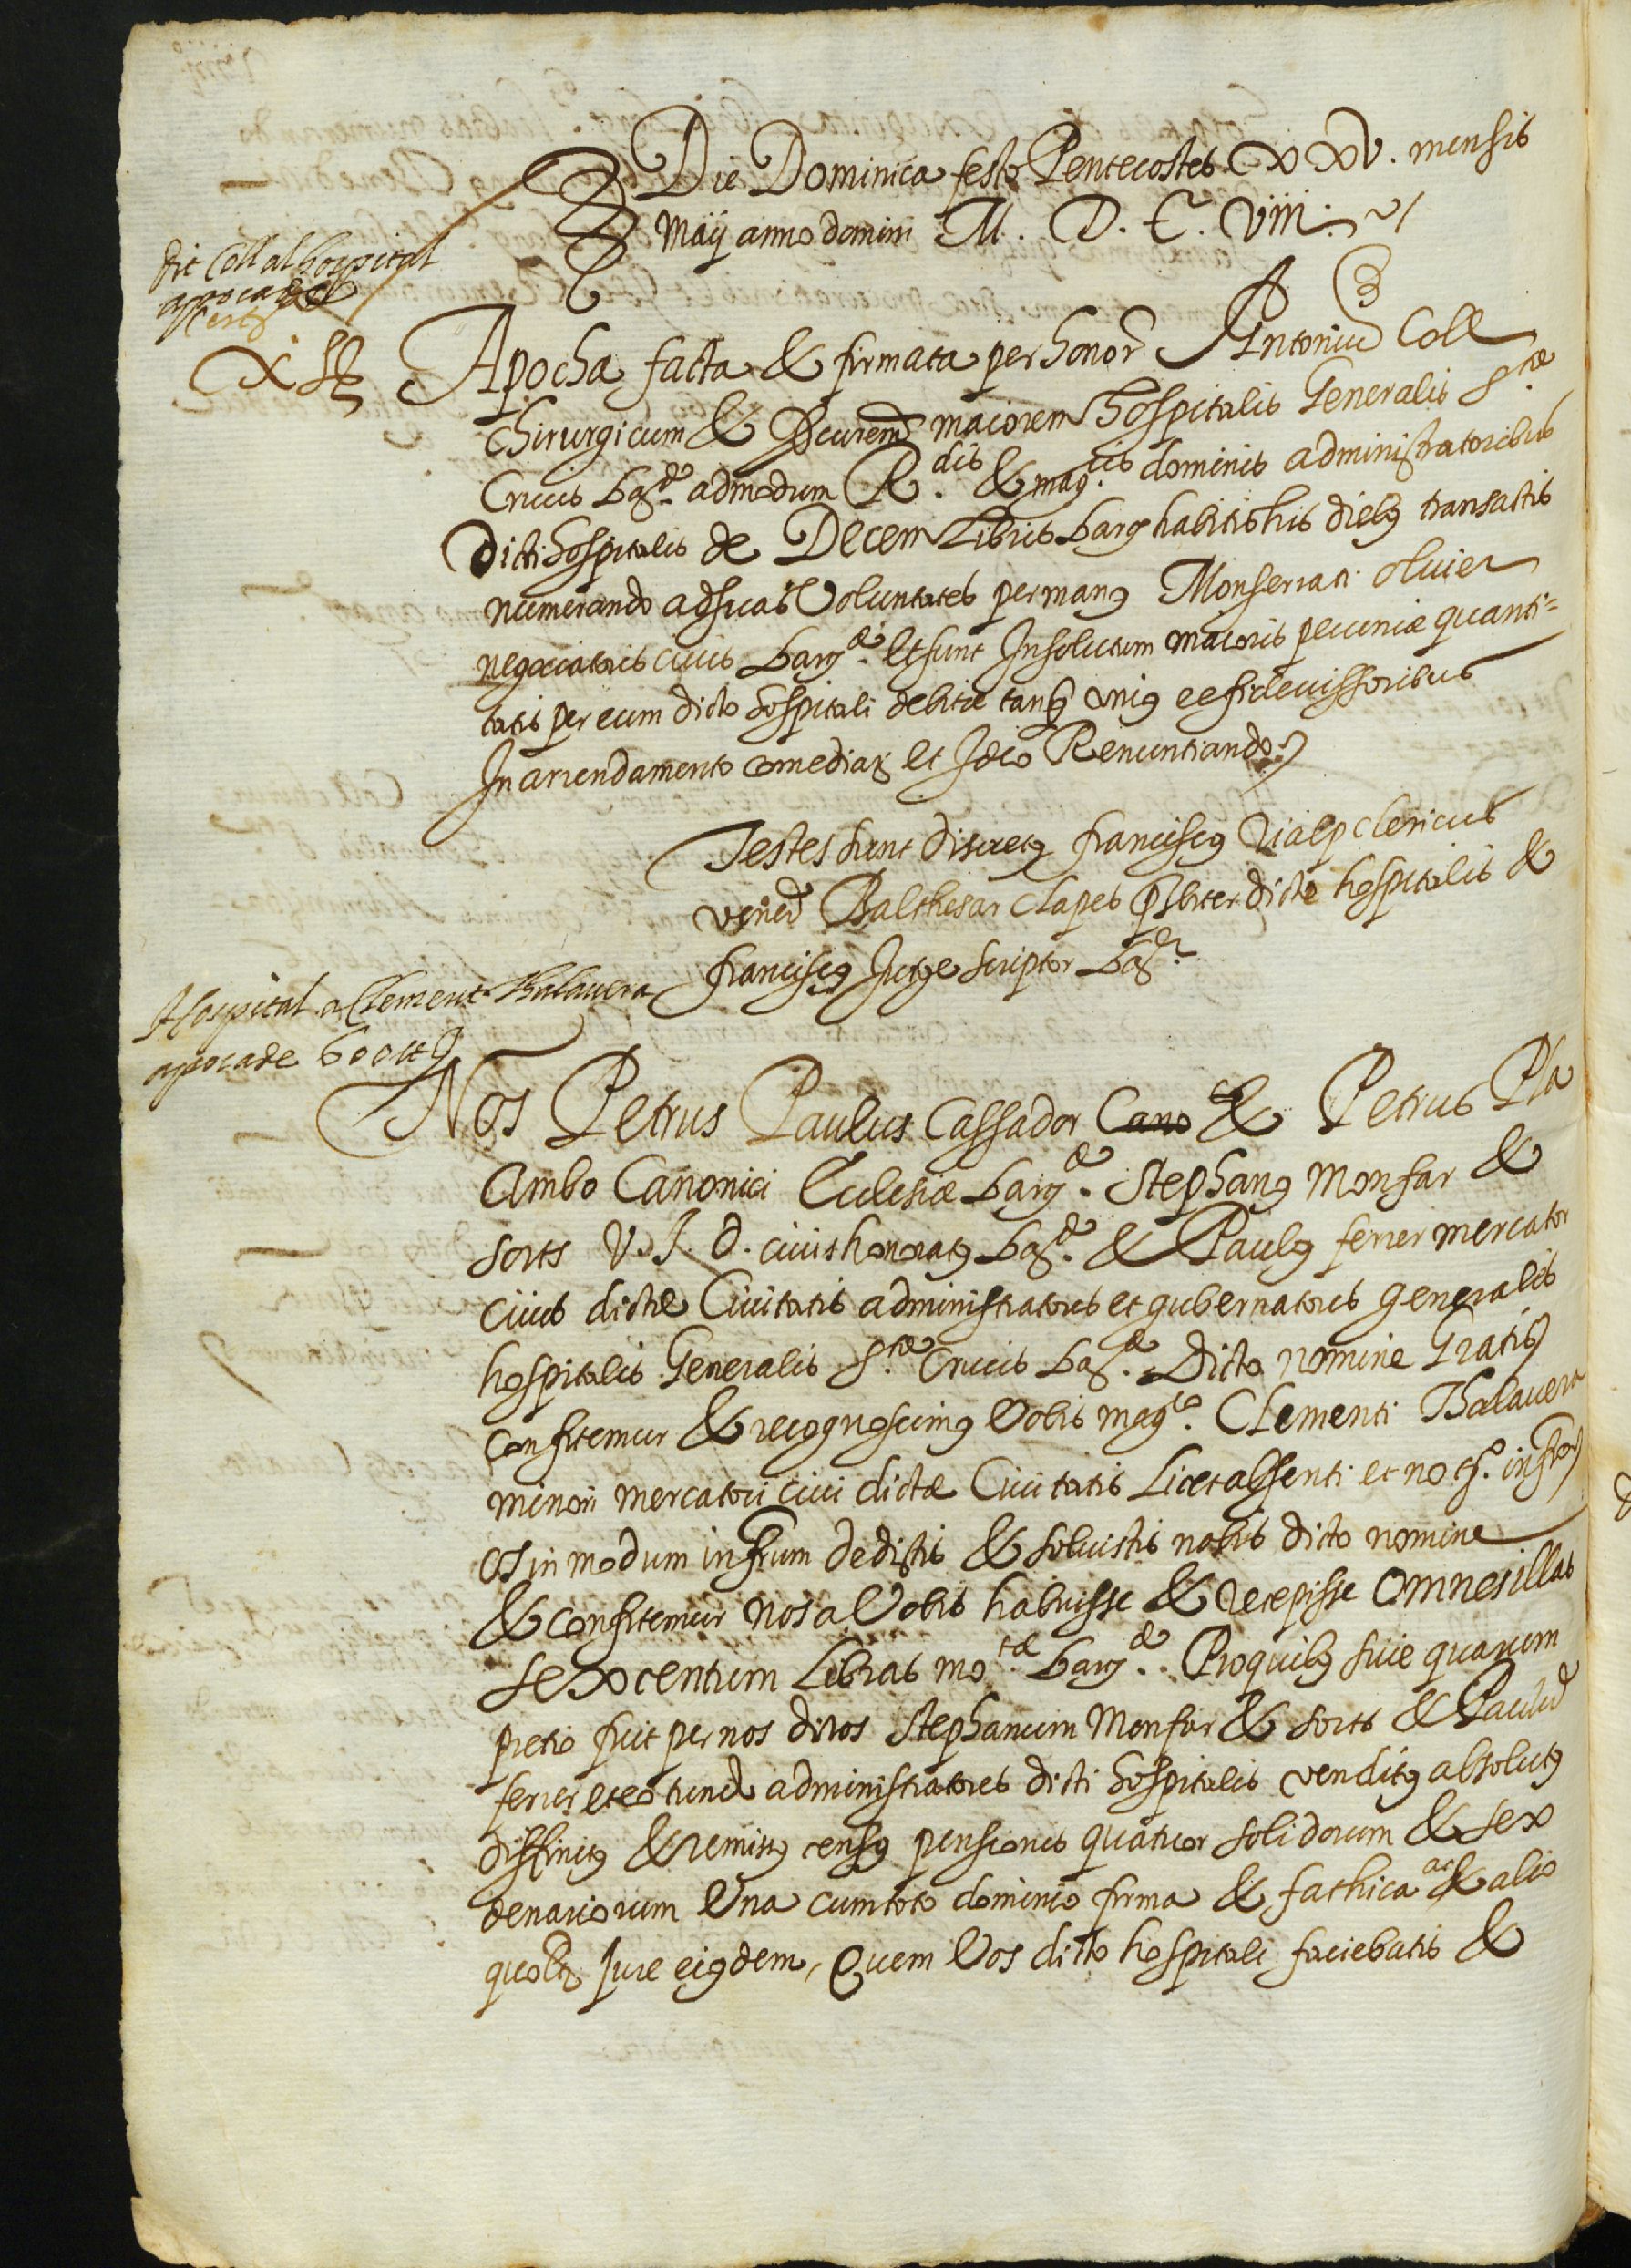 Die Dominica festo Pentecostes XXV. mensis
Maij anno domini M. D. C. Viiij.
dit Coll al hospital
apoca de
Apocha facta & firmata per honor. Antoniu Coll
Chirurgicum & maiorem hospitalis Generalis S.tæ
Crucis Barne. admodum R.dis & mag.cis dominis administratoribus
Dicti hospitalis de Decem Libris Barne habitis his diebus transactis
numerando ad suas Voluntates per manus Monserrati oliuier
negociatoris ciuis Barne. Et sunt In solutum maioris pecuniæ quanti=
tatis per eum dicto hospitali debitæ tanq unius ex fideiussoribus
In arrendamento comediar. et Ideo Renuntiando
Testes sunt discretus franciscus Vialp clericus
vener. Balthesar Clapes psbiter dicte hospitalis &
franciscus Jutge scriptor Barne
Hospital a Clement Thalauera
apoca de 600 ll
Nos Petrus Paulus Cassador Cano & Petrus Pla
Ambo Canonici Eclesiæ Barne. Stephanus Monfar &
Sorts V. J. D. ciuis honoratus Barne. & Paulus ferrer mercator
ciuis dictæ Ciuitatis administratores et gubernatores generales
hospitalis Generalis S.tæ Crucis Barne. Dicto nomine Gratis
Confitemur & recognoscimus Vobis mag.co Clementi Thalauera
minori mercatori ciui dictæ Ciuitatis Licet absenti et no.t. infro
Q in modum infrum dedistis & soluistis nobis dicto nomine
& confitemur nos a Vobis habuisse & recepisse Omnes illas
sexcentum Libras mo.tæ Barne. Pro quibus siue quarum
pretio fuit per nos dictos Stephanum Monfar & Sorts & Paulu
ferrer et eo tunc administratores dicti hospitalis venditus absolutus
diffinitus & remissus census pensionis quatuor solidorum & sex
denariorum Una cum toto dominio firma & fathica ac & alio
quolt. jure eiusdem, Quem Vos dicto hospitali faciebatis &